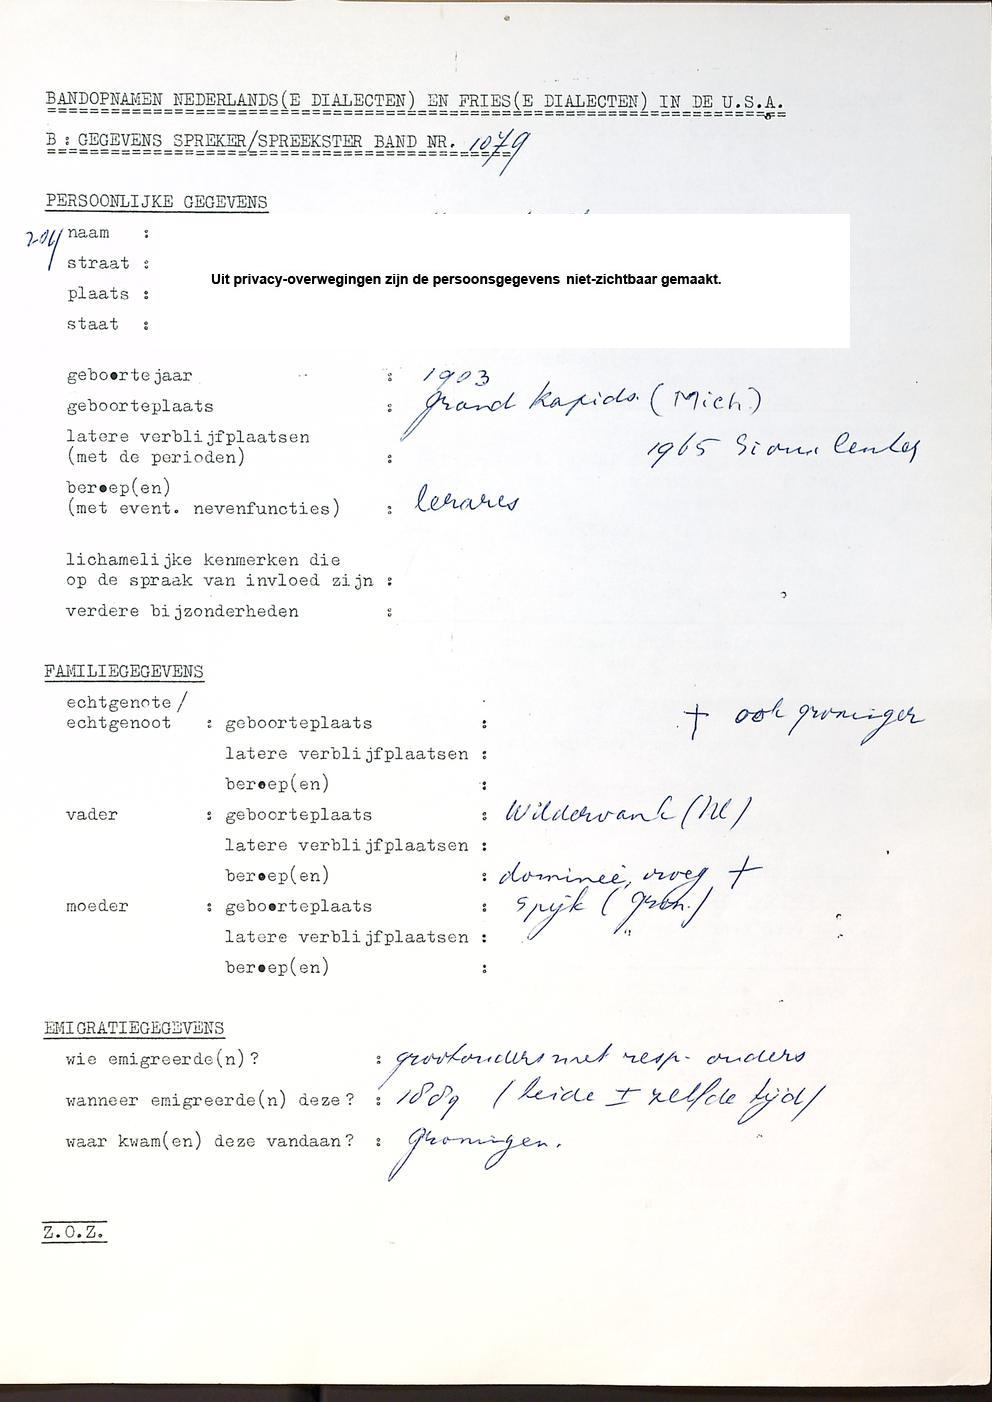 BANDOPNAMEN NEDERLANDS(E DIALECTEN) EN FRIES(E DIALECTEN) IN DE U.S.A.
B: GEGEVENS SPREKER/SPREEKSTER BAND NR. 1079
PERSOONLIJKE GEGEVENS
204 naam :
straat :
Uit privacy-overwegingen zijn de persoonsgegevens niet-zichtbaar gemaakt.
plaats :
staat :
geboortejaar : 1903
geboorteplaats : Grand Rapids (Mich.)
latere verblijfplaatsen
(met de perioden) : 1965 Sioux Center
beroep(en)
(met event. nevenfuncties) : lerares
lichamelijke kenmerken die
op de spraak van invloed zijn :
verdere bijzonderheden :
FAMILIEGEGEVENS
echtgenote/
echtgenoot : geboorteplaats : † ook groninger
latere verblijfplaatsen :
beroep(en) :
vader : geboorteplaats : Wildervank (Nl)
latere verblijfplaatsen :
beroep(en) : dominee, vroeg †
moeder : geboorteplaats : Spijk (Gron.)
latere verblijfplaatsen : "
beroep(en) :
EMIGRATIEGEGEVENS
wie emigreerde(n)? : grootouders met resp. ouders
wanneer emigreerde(n) deze? : 1889 (beide ± zelfde tijd)
waar kwam(en) deze vandaan? : Groningen.
Z.O.Z.